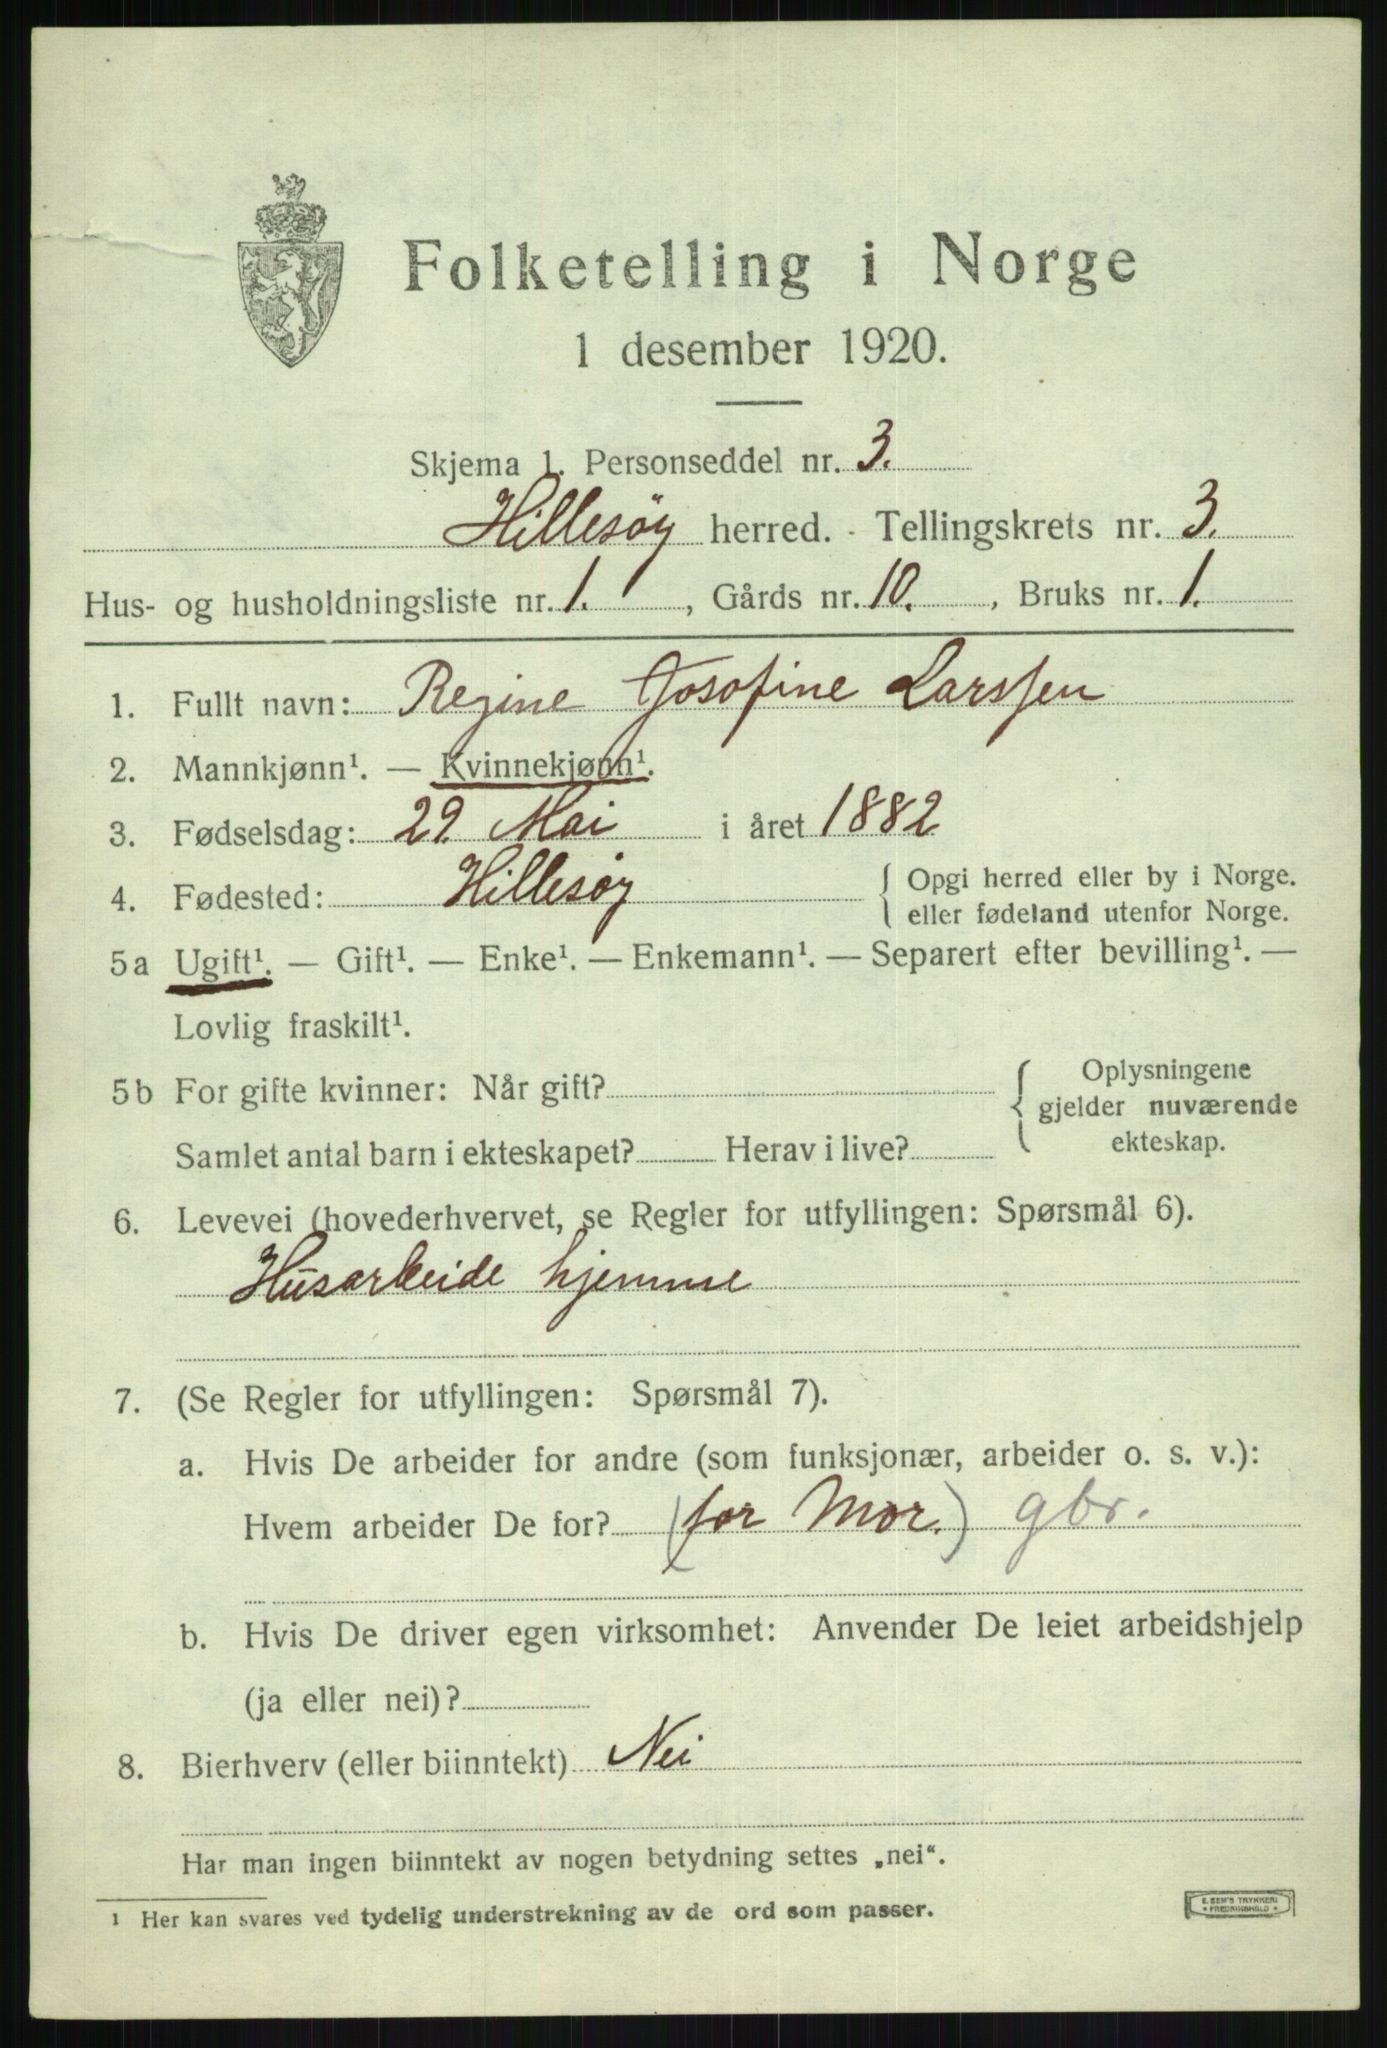 Folketelling i Norge
1 desember 1920.
Skjema 1. Personseddel nr. 3.
Hillesöy herred. - Tellingskrets nr. 3.
Hus- og husholdningsliste nr. 1. , Gårds nr. 10. , Bruks nr. 1.
1. Fullt navn: Regine Josofine Larssen
2. Mannkjønn¹. — Kvinnekjønn¹.
3. Fødselsdag: 29. Mai i året 1882
4. Fødested: Hillesöy { Opgi herred eller by i Norge.
eller fødeland utenfor Norge.
5a Ugift¹. — Gift¹. — Enke¹. — Enkemann¹. — Separert efter bevilling¹. —
Lovlig fraskilt¹.
5b For gifte kvinner: Når gift? { Oplysningene
gjelder nuværende
Samlet antal barn i ekteskapet? Herav i live? ekteskap.
6. Levevei (hovederhvervet, se Regler for utfyllingen: Spørsmål 6).
Husarbeide hjemme
7. (Se Regler for utfyllingen: Spørsmål 7).
a. Hvis De arbeider for andre (som funksjonær, arbeider o. s. v.):
Hvem arbeider De for? (for Mor.) gbr.
b. Hvis De driver egen virksomhet: Anvender De leiet arbeidshjelp
(ja eller nei)?
8. Bierhverv (eller biinntekt) Nei
Har man ingen biinntekt av nogen betydning settes „nei“.
1 Her kan svares ved tydelig understrekning av de ord som passer.
E. SEM'S TRYKKERI
• FREDRIKSHALD •